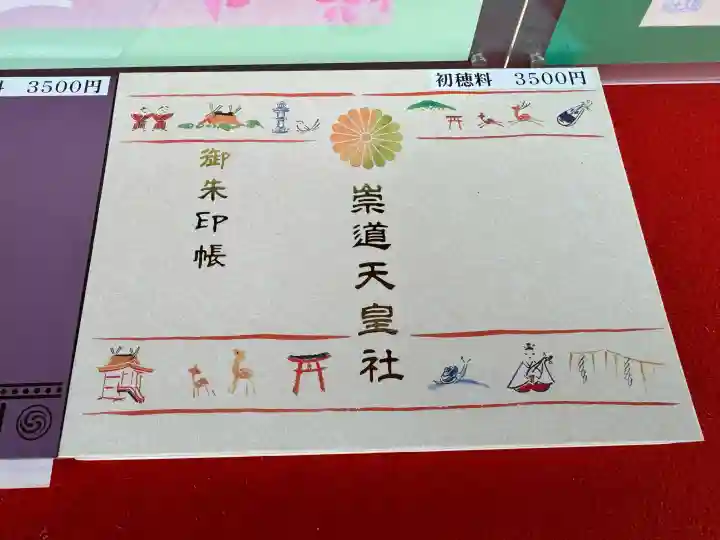 料 3500円
初穂料 3500円
御朱印帳
崇道天皇社